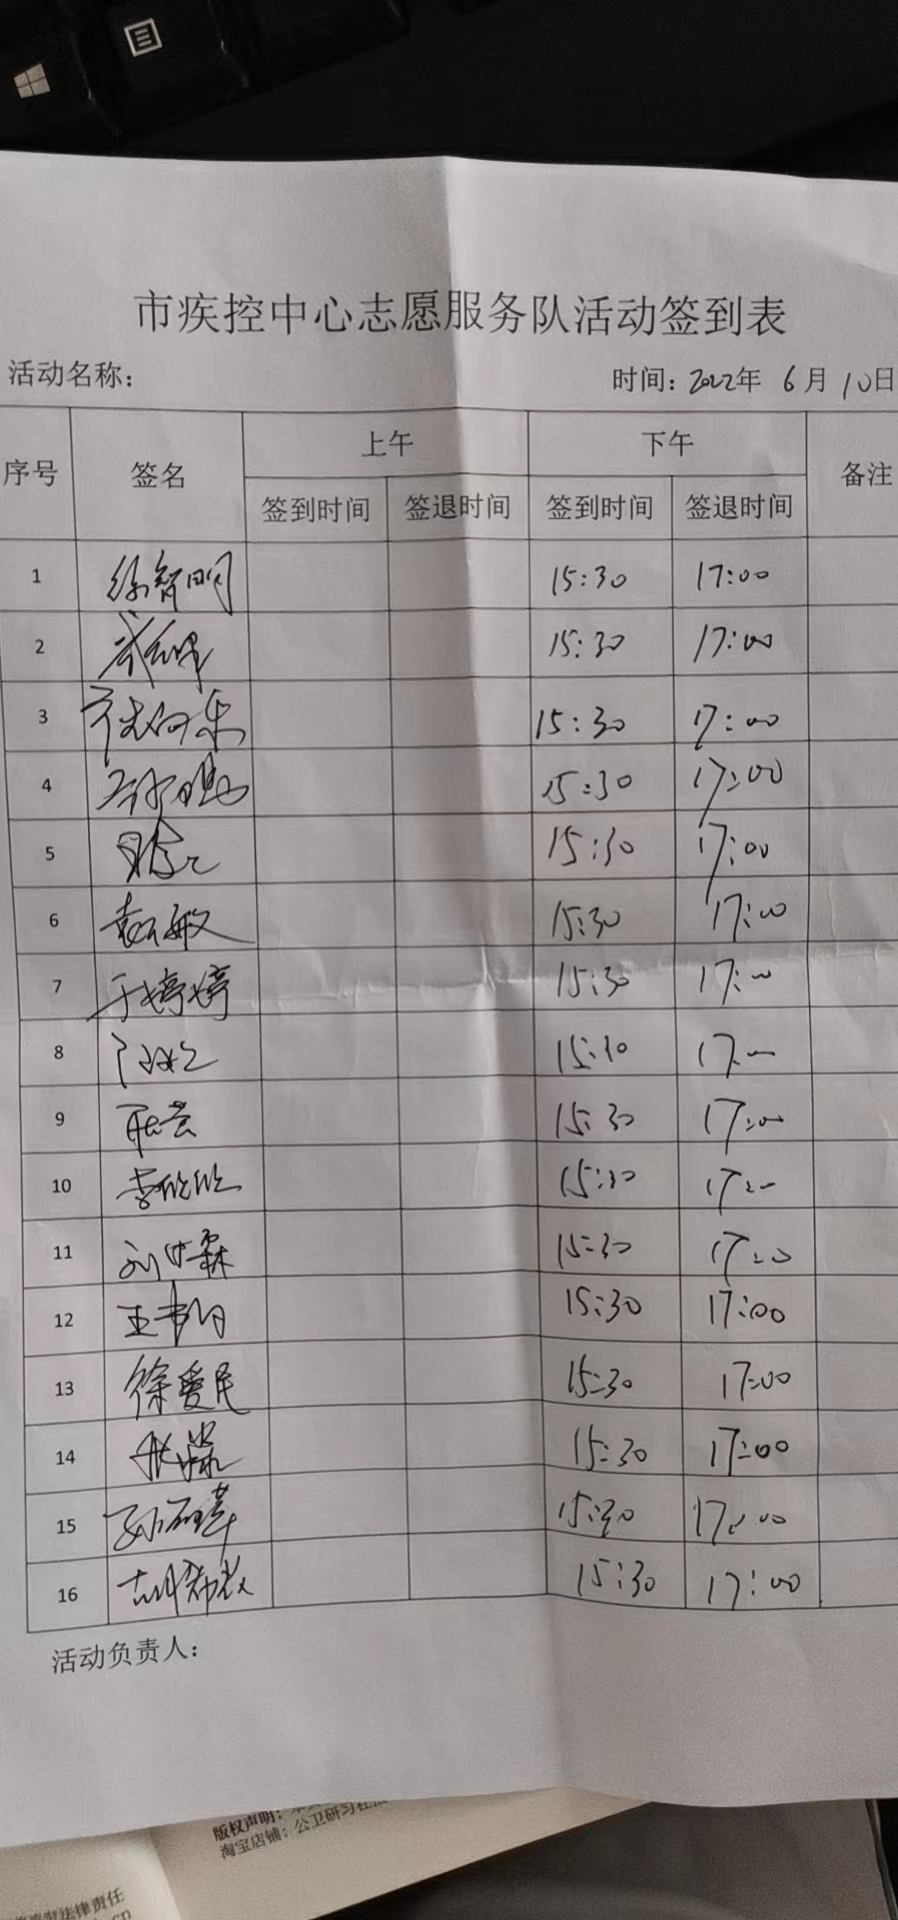 市疾控中心志愿服务队活动签到表
活动名称: 时间: 2022年 6月 10日
序号 签名 上午 下午 备注
签到时间 签退时间 签到时间 签退时间
1 徐智明 15:30 17:00
2 15:30 17:00
3 15:30 17:00
4 15:30 17:00
5 15:30 17:00
6 袁敏 15:30 17:00
7 于婷婷 15:30 17:00
8 15:30 17:00
9 15:30 17:00
10 李欣欣 15:30 17:00
11 刘霖 15:30 17:00
12 15:30 17:00
13 徐爱民 15:30 17:00
14 15:30 17:00
15 15:30 17:00
16 15:30 17:00
活动负责人:
版权声明:
淘宝店铺: 公卫研习社
法律责任